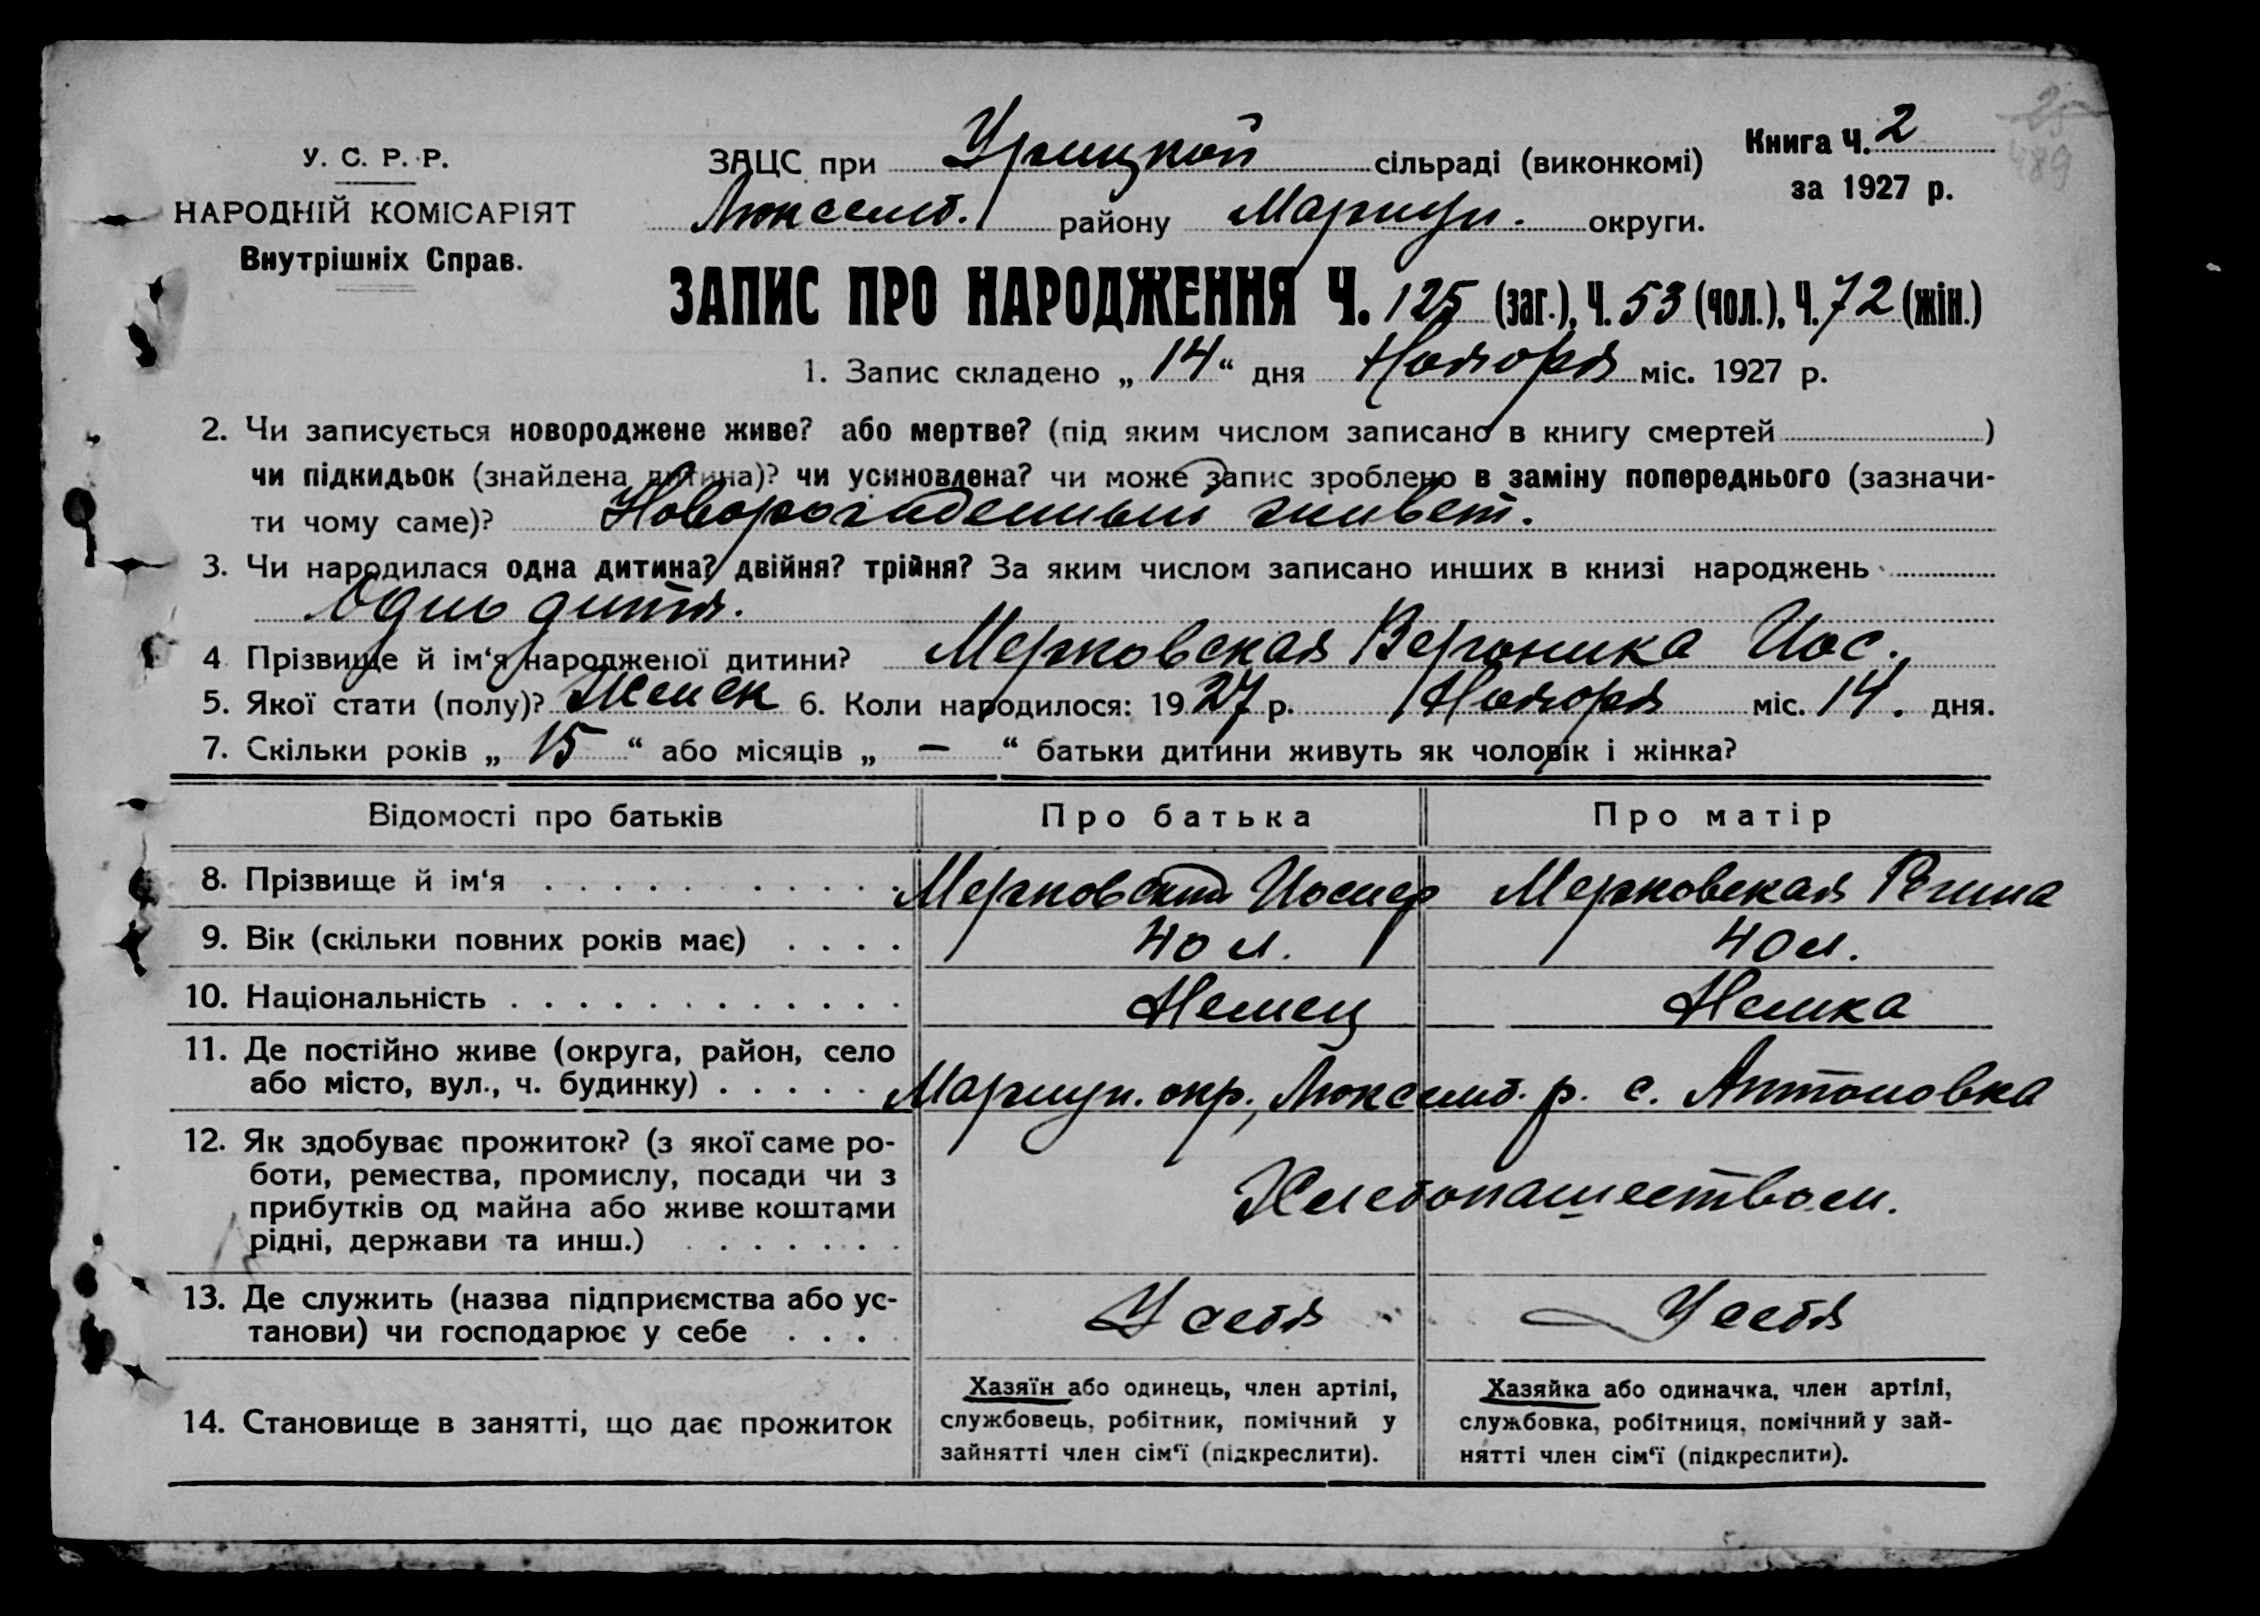 У. С. Р. Р.
НАРОДНІЙ КОМІСАРІЯТ
Внутрішніх Справ.
ЗАЦС при Урицкой сільраді (виконкомі)
Люксемб. району Мариуп. округи.
Книга Ч. 2
за 1927 р.
25
489
ЗАПИС ПРО НАРОДЖЕННЯ Ч. 125 (заг.), Ч. 53 (чол.), Ч. 72 (жін.)
1. Запис складено „ 14 “ дня Ноября міс. 1927 р.
2. Чи записується новороджене живе? або мертве? (під яким числом записано в книгу смертей )
чи підкидьок (знайдена дитина)? чи усиновлена? чи може запис зроблено в заміну попереднього (зазначи-
ти чому саме)? Новорожденный живет.
3. Чи народилася одна дитина? двійня? трійня? За яким числом записано инших в книзі народжень
дитя.
4 Прізвище й ім‘я народженої дитини? Мерковская Вероника Иос.
5. Якої стати (полу)? Женск 6. Коли народилося: 1927 р. Ноября міс. 14. дня.
7. Скільки років „ 15 “ або місяців „ — “ батьки дитини живуть як чоловік і жінка?
Відомості про батьків Про батька Про матір
8. Прізвище й ім‘я Мерковский Иосиф Мерковская Регина
9. Вік (скільки повних років має) 40 л. 40 л.
10. Національність Немец Немка
11. Де постійно живе (округа, район, село
або місто, вул., ч. будинку) Мариуп. окр., Люксемб. р. с. Антоновка
12. Як здобуває прожиток? (з якої саме ро-
боти, ремества, промислу, посади чи з
прибутків од майна або живе коштами
рідні, держави та инш.)
Хлебопашеством.
13. Де служить (назва підприємства або ус-
танови) чи господарює у себе У себя У себя
14. Становище в занятті, що дає прожиток
Хазяїн або одинець, член артілі,
службовець, робітник, помічний у
зайнятті член сім‘ї (підкреслити).
Хазяйка або одиначка, член артілі,
службовка, робітниця, помічний у зай-
нятті член сім‘ї (підкреслити).